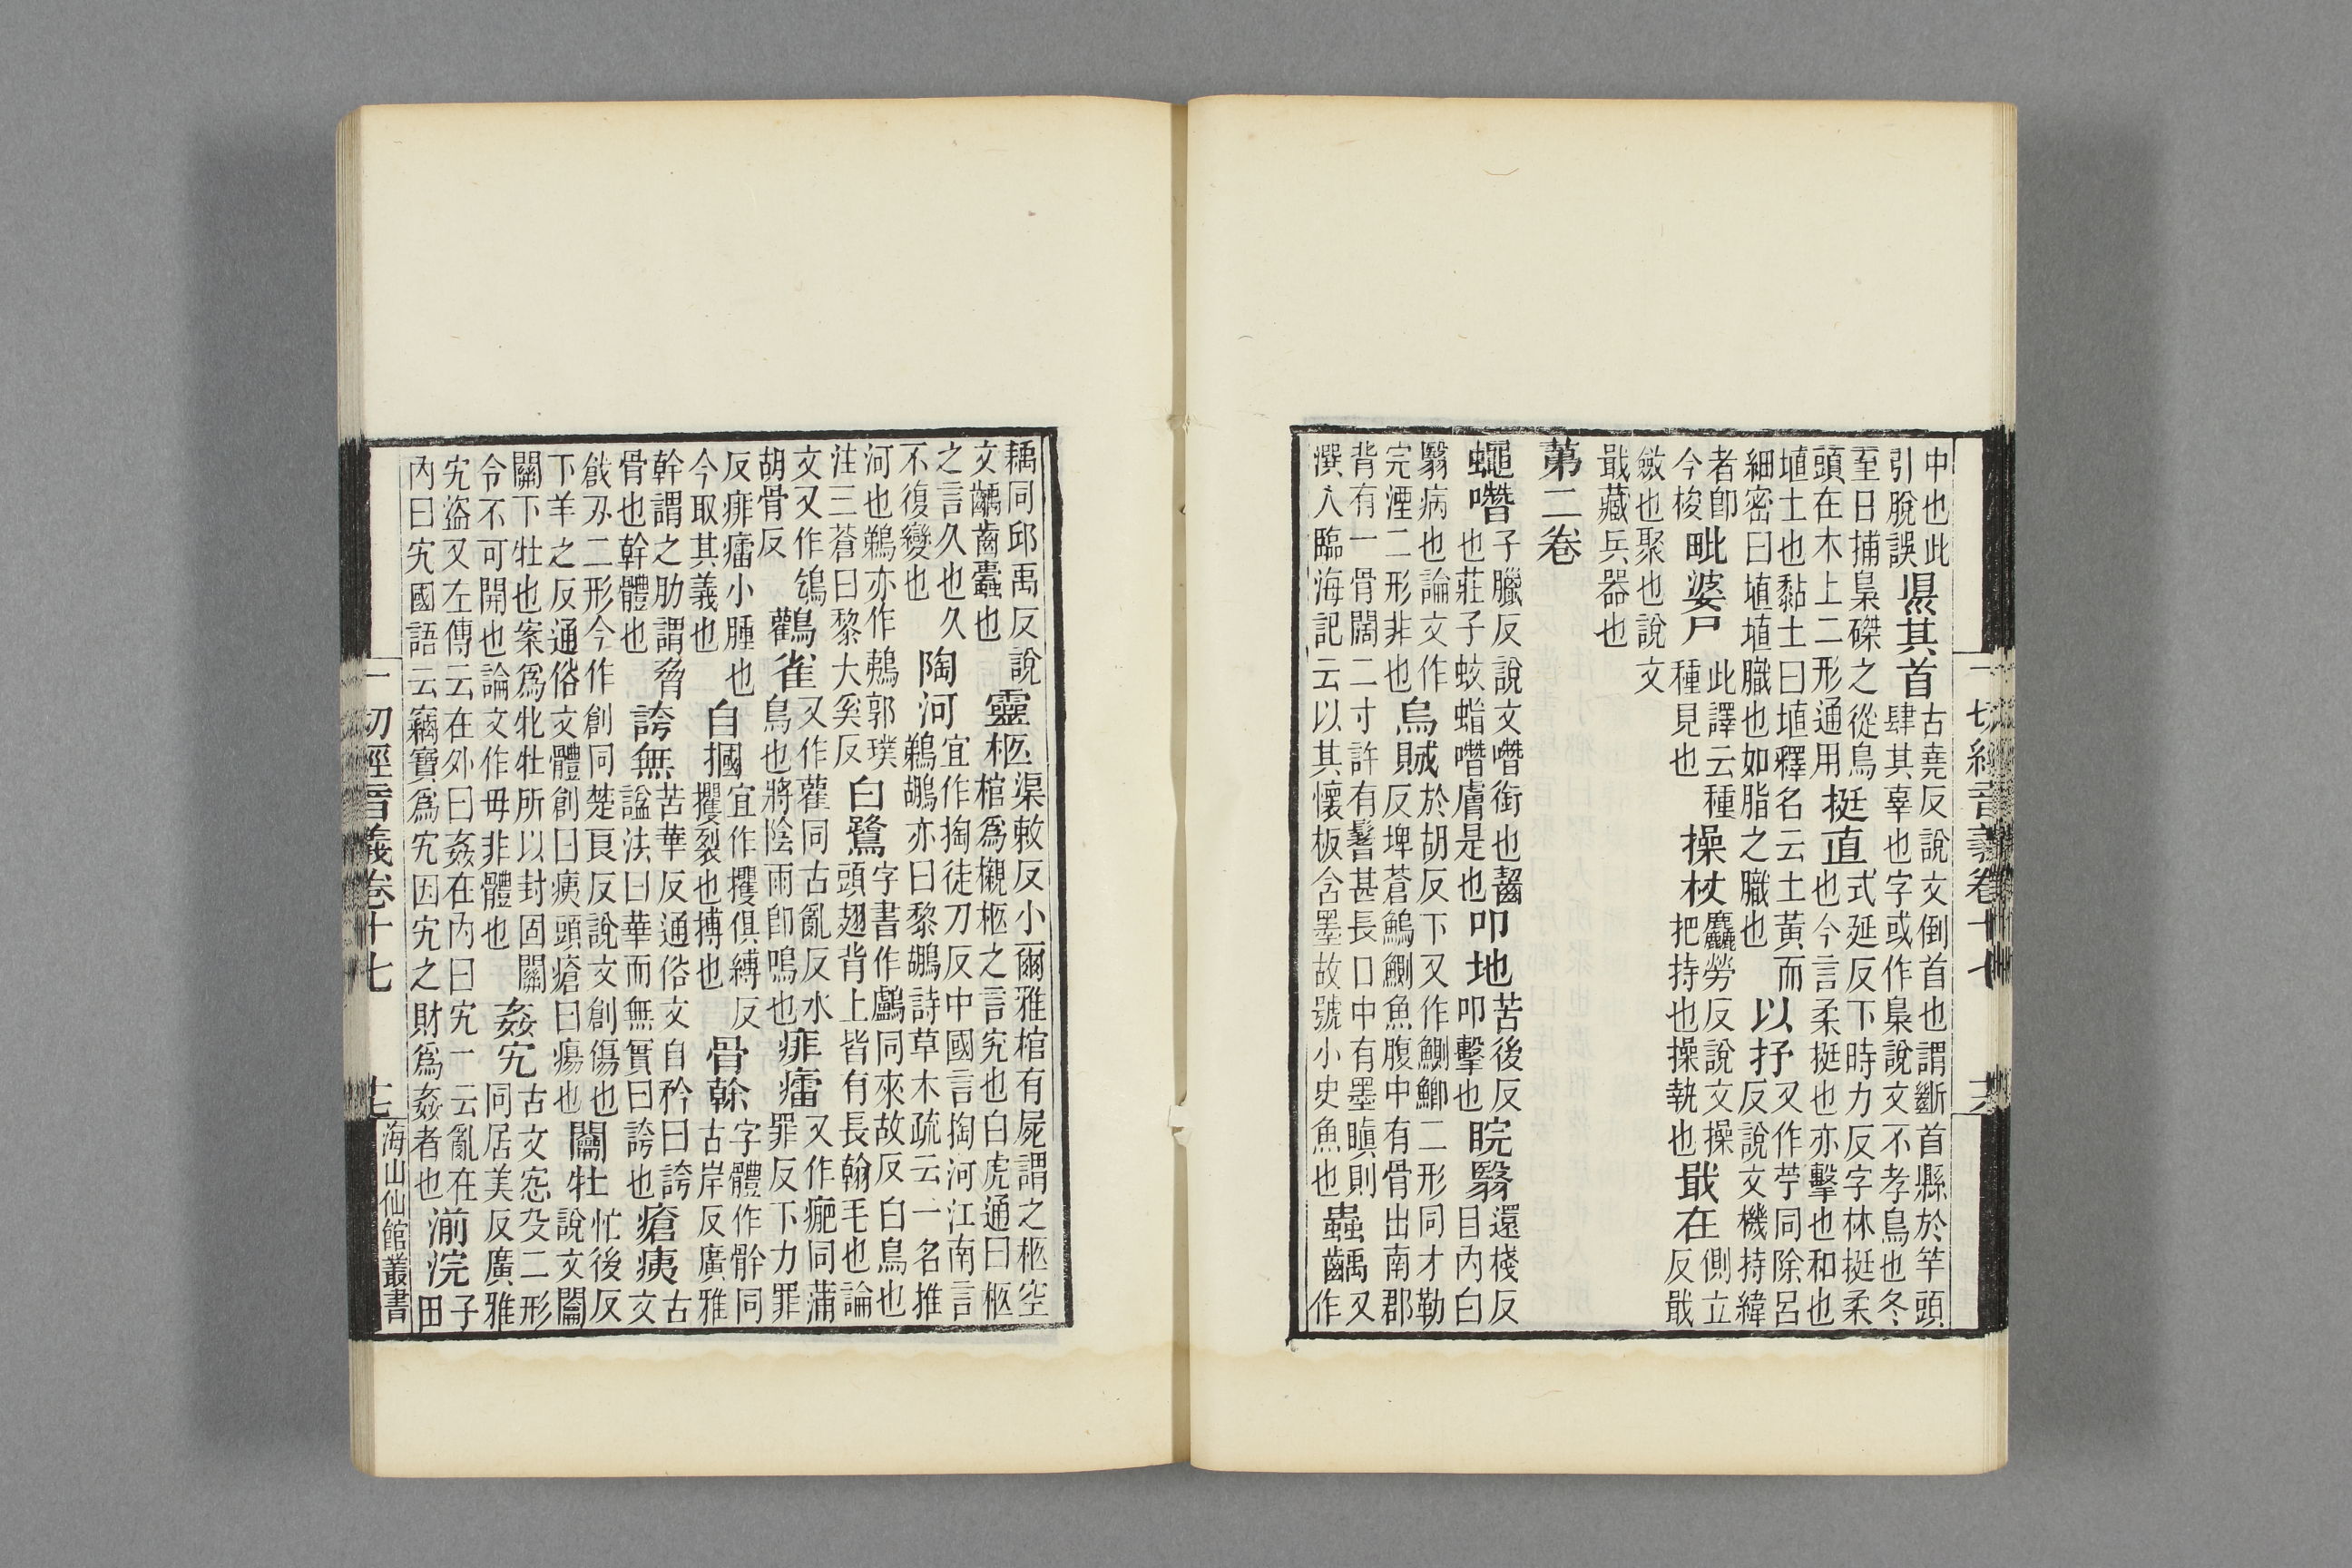 中也此
引脫誤
県其首
古堯反說文倒首也謂斷首縣於竿頭
肆其辜也字或作梟說文不孝鳥也冬
至日捕梟磔之從鳥
頭在木上二形通用
挻直
式延反下時力反字林挻柔
也今言柔挻也亦擊也和也
埴土也黏土曰埴釋名云土黃而
細密曰埴埴膱也如脂之膱也
以抒
又作苧同除呂
反說文機持緯
者卽
今梭
毗婆尸
此譯云種
種見也
操杖
麤勞反說文操
把持也操執也
戢在
側立
反戢
斂也聚也說文
戢藏兵器也
第二卷
蠅噆
子臘反說文噆銜也齧
也莊子蚊噆膚是也
叩地
苦後反
叩擊也
睆翳
還棧反
目內白
翳病也論文作
完湮二形非也
烏賊
於胡反下又作鰂鯽二形同才勒
反埤蒼鰞鰂魚腹中有骨出南郡
背有一骨闊二寸許有鬐甚長口中有墨瞋則
潠人臨海記云以其懷板含墨故號小史魚也
蟲齲
又
作
同邱禹反說
文齲齒蠹也
靈柩
渠救反小爾雅棺有屍謂之柩空
棺爲櫬柩之言究也白虎通曰柩
之言久也久
不復變也
陶河
宜作掏徒刀反中國言掏河江南言
鵜鶘亦曰黎鶘詩草木疏云一名掏
河也鵜亦作鶙郭璞
注三蒼曰黎大奚反
白鷺
字書作同來故反白鳥也
頭翅背上皆有長翰毛也論
文又作
胡骨反
鸛雀
又作雚同古亂反水
鳥也將陰雨卽鳴也
痱癗
又作疿同蒲
罪反下力罪
反痱癗小腫也
今取其義也
自摑
宜作攫俱縛反
攫裂也搏也
骨榦
字體作骭同
古岸反廣雅
幹謂之肋謂脅
骨也幹體也
誇無
苦華反通俗文自矜曰誇
諡法曰華而無實曰誇也
瘡痍
古
文
戧刅二形今作創同楚良反說文創傷也
下羊之反通俗文體創曰痍頭瘡曰瘍也
闟牡
忙後反
說文闟
關下牡也案爲牝牡所以封固關
令不可開也論文作毋非體也
姦宄
古文二形
同居美反廣雅
宄盜也又左傳云在外曰姦在內曰宄一云亂在
內曰宄國語云竊寶爲宄因宄之財爲姦者也
湔浣
子
田
一切經音義卷十七
海山仙館叢書